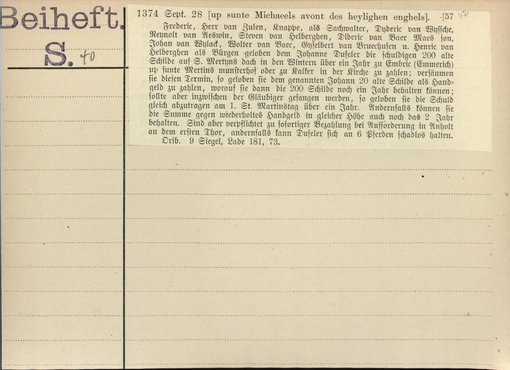 Beiheft.
S. 40
1374 Sept. 28 [up sunte Michaeels avont des heylighen enghels]. [57
Frederic, Herr van Zulen, Knappe, als Sachwalter, Dyderic van Wyssche,
Reynolt van Aeswin, Steven van Helberghen, Dideric van Baer Maes son,
Johan van Wylack, Wolter van Baec, Gyselbert van Bruechusen u. Henric van
Helberghen als Bürgen geloben dem Johanne Duseler die schuldigen 200 alte
Schilde auf S. Mertyns dach in den Wintern über ein Jahr zu Embric (Emmerich)
up sunte Mertins munsterhof oder zu Kalker in der Kirche zu zahlen; versäumen
sie diesen Termin, so geloben sie dem genannten Johann 20 alte Schilde als Hand-
geld zu zahlen, worauf sie dann die 200 Schilde noch ein Jahr behalten können;
sollte aber inzwischen der Gläubiger gefangen werden, so geloben sie die Schuld
gleich abzutragen am 1. St. Martinstag über ein Jahr. Andernfalls können sie
die Summe gegen wiederholtes Handgeld in gleicher Höhe auch noch das 2 Jahr
behalten. Sind aber verpflichtet zu sofortiger Bezahlung bei Aufforderung in Anholt
an dem ersten Thor, andernfalls kann Duseler sich an 6 Pferden schadlos halten.
Orib. 9 Siegel, Lade 181, 73.